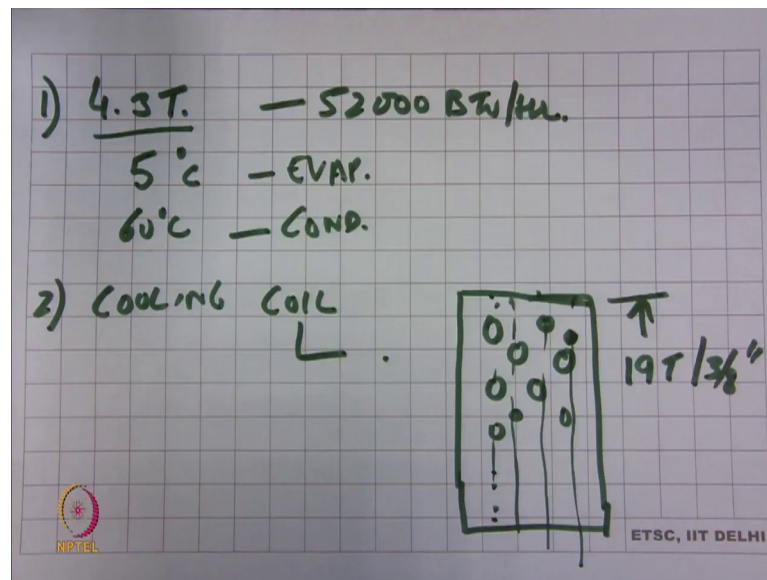 1) 4.3T. — 52000 BTU/HR.
5°C — EVAP.
60°C — COND.
2) COOLING COIL
19T/3/8"
NPTEL
ETSC, IIT DELHI